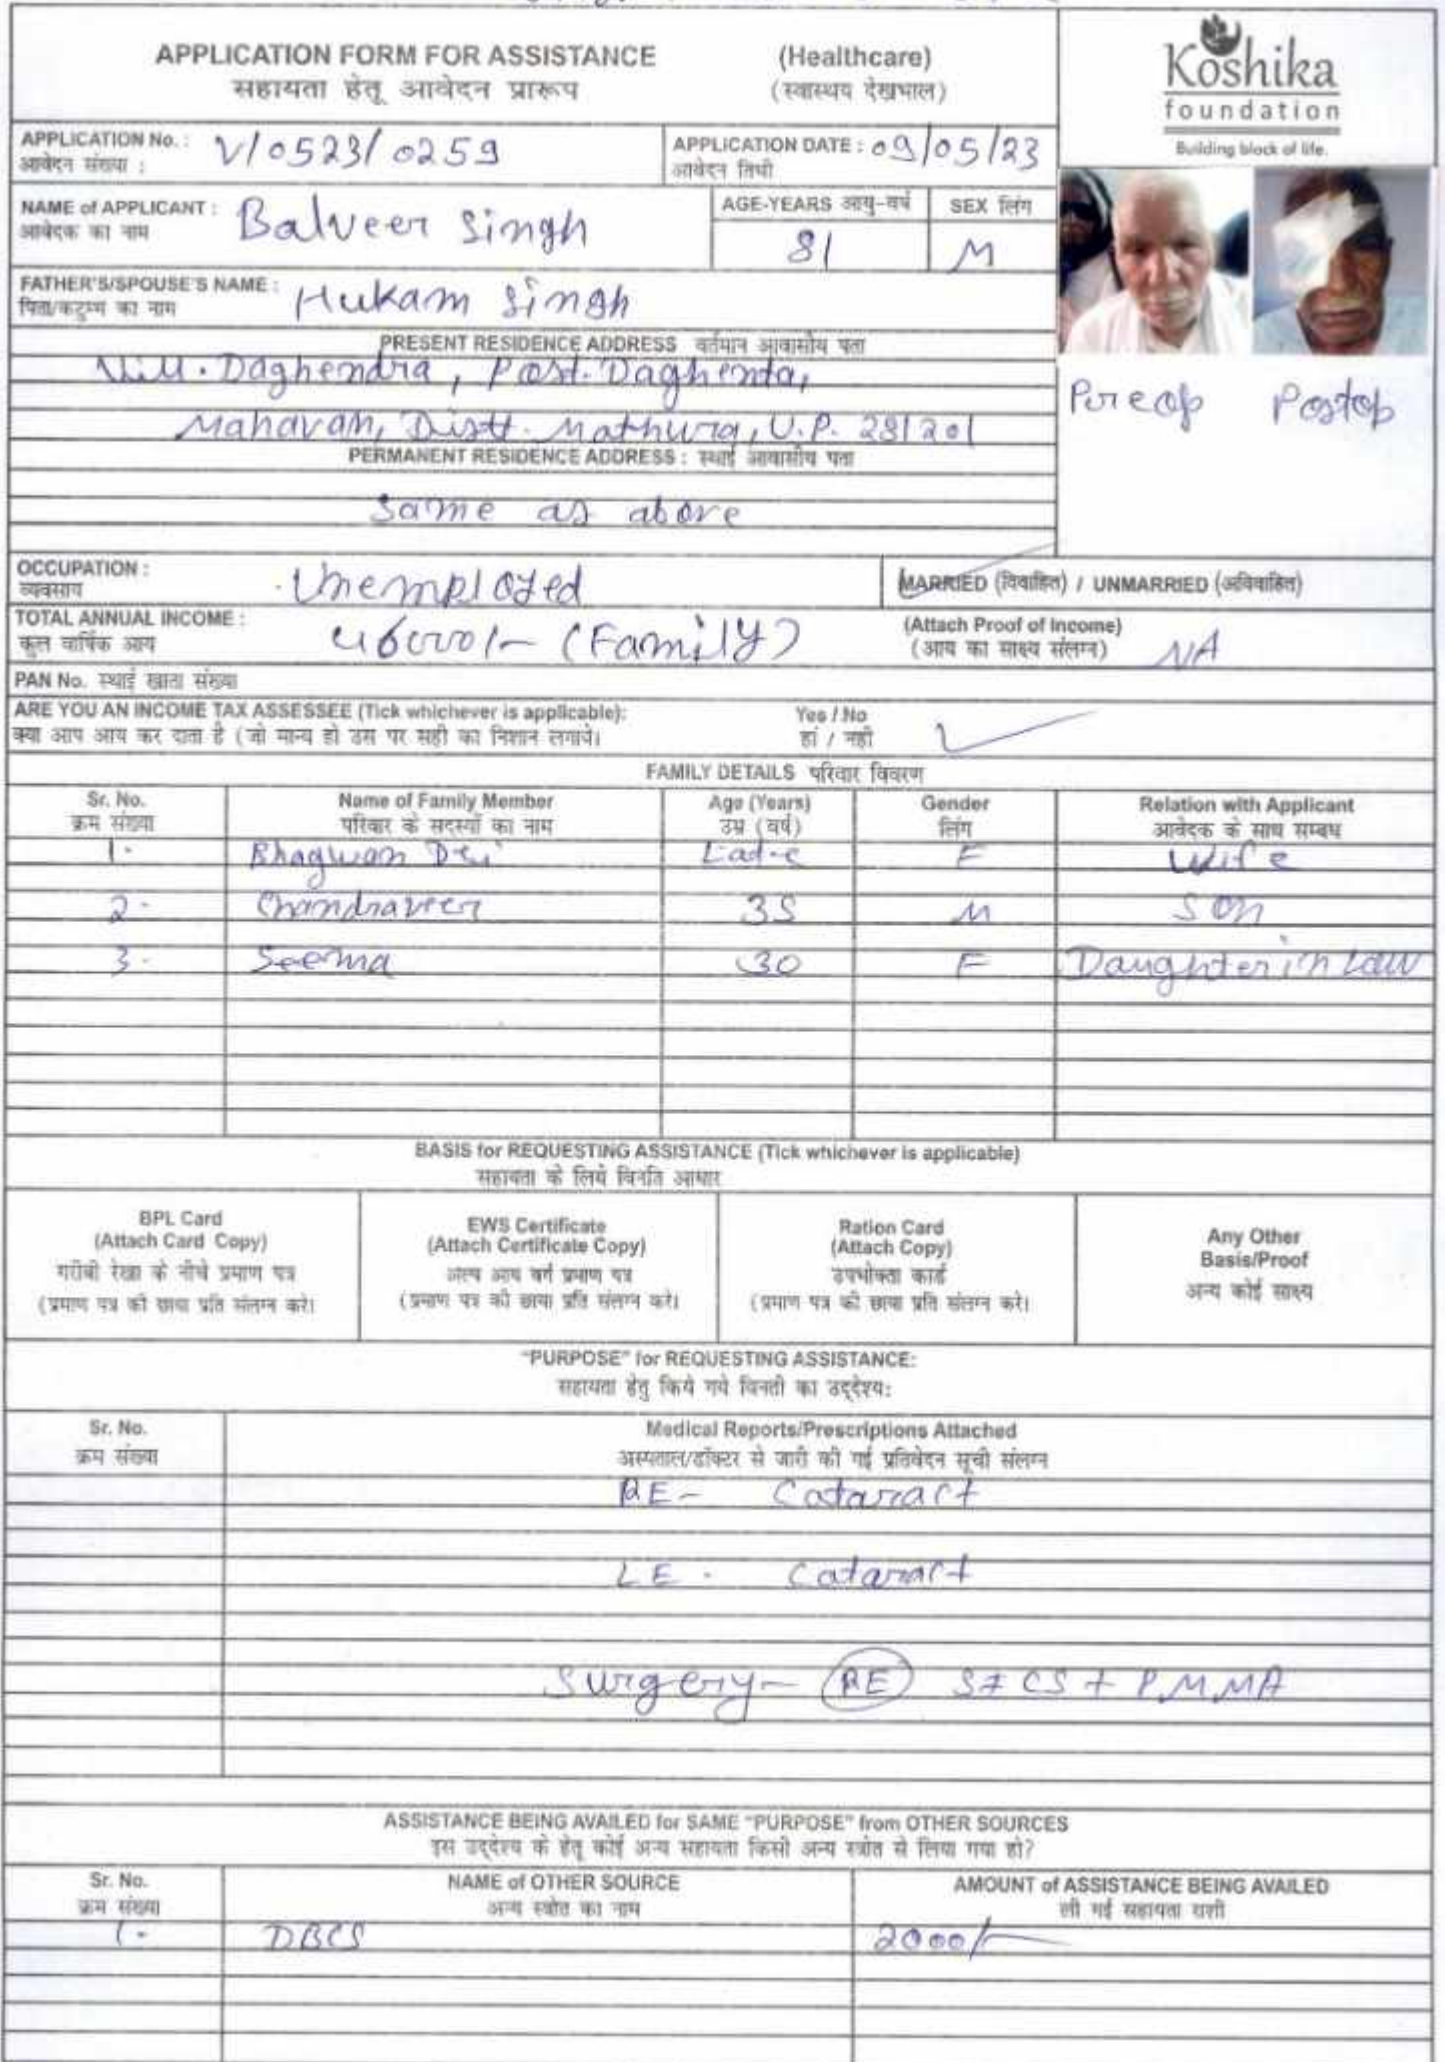 APPLICATION FORM FOR ASSISTANCE (Healthcare)
सहायता हेतू आवेदन प्रारूप (स्वास्थय देखभाल)
Koshika
foundation
Building block of life.
APPLICATION No. : V/0523/0259
आवेदन संख्या :
APPLICATION DATE : 09/05/23
आवेदन तिथी
NAME of APPLICANT : Balveer Singh
आवेदक का नाम
AGE-YEARS आयु-वर्ष
81
SEX लिंग
M
FATHER'S/SPOUSE'S NAME : Hukam Singh
पिता/कटुम्ब का नाम
PRESENT RESIDENCE ADDRESS वर्तमान आवासीय पता
Vill. Daghendra, Post. Daghenta,
Mahavan, Distt. Mathura, U.P. 281201
Preop Postop
PERMANENT RESIDENCE ADDRESS : स्थाई आवासीय पता
Same as above
OCCUPATION : Unemployed
व्यवसाय
MARRIED (विवाहित) / UNMARRIED (अविवाहित)
TOTAL ANNUAL INCOME : 46000/- (Family)
कुल वार्षिक आय
(Attach Proof of Income)
(आय का साक्ष्य संलग्न) NA
PAN No. स्थाई खाता संख्या
ARE YOU AN INCOME TAX ASSESSEE (Tick whichever is applicable): Yes / No
क्या आप आय कर दाता है (जो मान्य हो उस पर सही का निशान लगाये। हां / नही
FAMILY DETAILS परिवार विवरण
Sr. No. Name of Family Member Age (Years) Gender Relation with Applicant
क्रम संख्या परिवार के सदस्यों का नाम उम्र (वर्ष) लिंग आवेदक के साथ सम्बध
1- Bhagwan Dei F Wife
2- Chandraveer 35 M Son
3- Seema 30 F Daughter in Law
BASIS for REQUESTING ASSISTANCE (Tick whichever is applicable)
सहायता के लिये विनति आधार
BPL Card
(Attach Card Copy)
गरीबी रेखा के नीचे प्रमाण पत्र
(प्रमाण पत्र की छाया प्रति संलग्न करे।
EWS Certificate
(Attach Certificate Copy)
अल्प आय वर्ग प्रमाण पत्र
(प्रमाण पत्र की छाया प्रति संलग्न करे।
Ration Card
(Attach Copy)
उपभोक्ता कार्ड
(प्रमाण पत्र की छाया प्रति संलग्न करे।
Any Other
Basis/Proof
अन्य कोई साक्ष्य
"PURPOSE" for REQUESTING ASSISTANCE:
सहायता हेतु किये गये विनती का उद्देश्य:
Sr. No. Medical Reports/Prescriptions Attached
क्रम संख्या अस्पताल/डॉक्टर से जारी की गई प्रतिवेदन सूची संलग्न
RE- Cataract
LE- Cataract
Surgery- RE SICS + PMMA
ASSISTANCE BEING AVAILED for SAME "PURPOSE" from OTHER SOURCES
इस उद्देश्य के हेतू कोई अन्य सहायता किसी अन्य स्त्रोत से लिया गया हो?
Sr. No. NAME of OTHER SOURCE AMOUNT of ASSISTANCE BEING AVAILED
क्रम संख्या अन्य स्त्रोत का नाम ली गई सहायता राशी
1- DBCS 2000/-